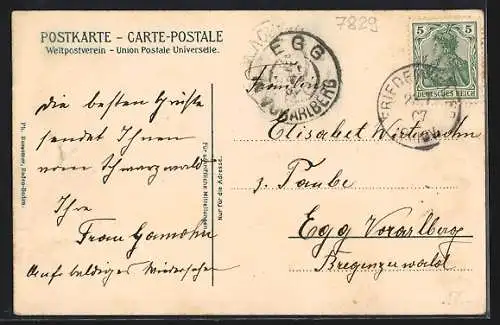 7829
POSTKARTE – CARTE-POSTALE
Weltpostverein – Union Postale Universelle.
EGG
VORARLBERG
5 5
DEUTSCHES REICH
Familie
die besten Grüße
sendet Ihnen
vom Schwarzwald
Ihre
Frau
Auf baldiges Wiedersehen
Für schriftliche Mitteilungen
Nur für die Adresse.
Baden-Baden.
Elisabet
z. Taube
Egg Vorarlberg
Bregenzerwald